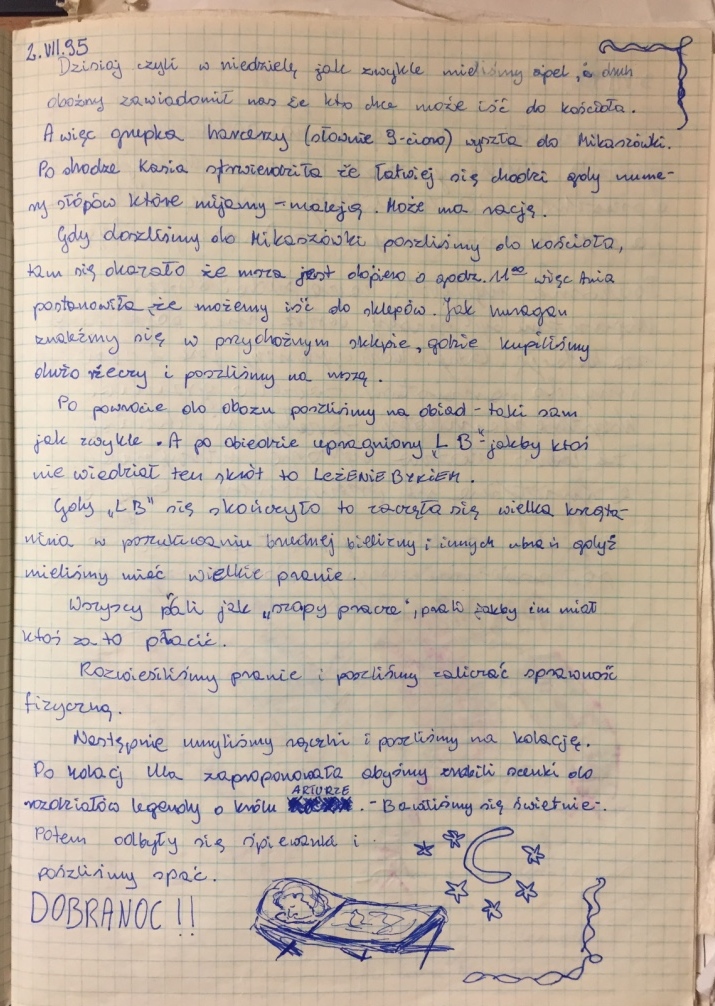 2.VII.95
Dzisiaj czyli w niedzielę jak zwykle mieliśmy apel, a druh
obożny zawiadomił nas że kto chce może iść do kościoła.
A więc grupka harcerzy (słownie 9-cioro) wyszła do Mikaszówki.
Po drodze Kasia stwierdziła że łatwiej się chodzi gdy nume-
ry słópów które mijamy - maleją. Może ma rację.
Gdy doszliśmy do Mikaszówki poszliśmy do kościoła,
tam się okazało że msza jest dopiero o godz. 11⁰⁰ więc Ania
postanowiła, że możemy iść do sklepów. Jak huragan
znaleźmy się w przychożnym sklepie, gdzie kupiliśmy
dużo rzeczy i poszliśmy na mszę.
Po powrocie do obozu poszliśmy na obiad - taki sam
jak zwykle. A po obiedzie upragniony „L B" - jakby ktoś
nie wiedział ten skrót to LEŻENIE BYKIEM.
Gdy „LB" się skończyło to zaczęła się wielka krząta-
nina w poszukiwaniu brudnej bielizny i innych ubrań gdyż
mieliśmy mieć wielkie pranie.
Wszyscy prali jak „szapy pracze", prali jakby im miał
ktoś za to płacić.
Rozwiesiliśmy pranie i poszliśmy zaliczać sprawność
fizyczną.
Następnie umyliśmy rączki i poszliśmy na kolację.
Po kolacj Ula zaproponowała abyśmy zrobili scenki do
rozdziałów legendy o królu ARTURZE. - Bawiliśmy się świetnie -.
Potem odbyły się śpiewanki i
poszliśmy spać.
DOBRANOC !!